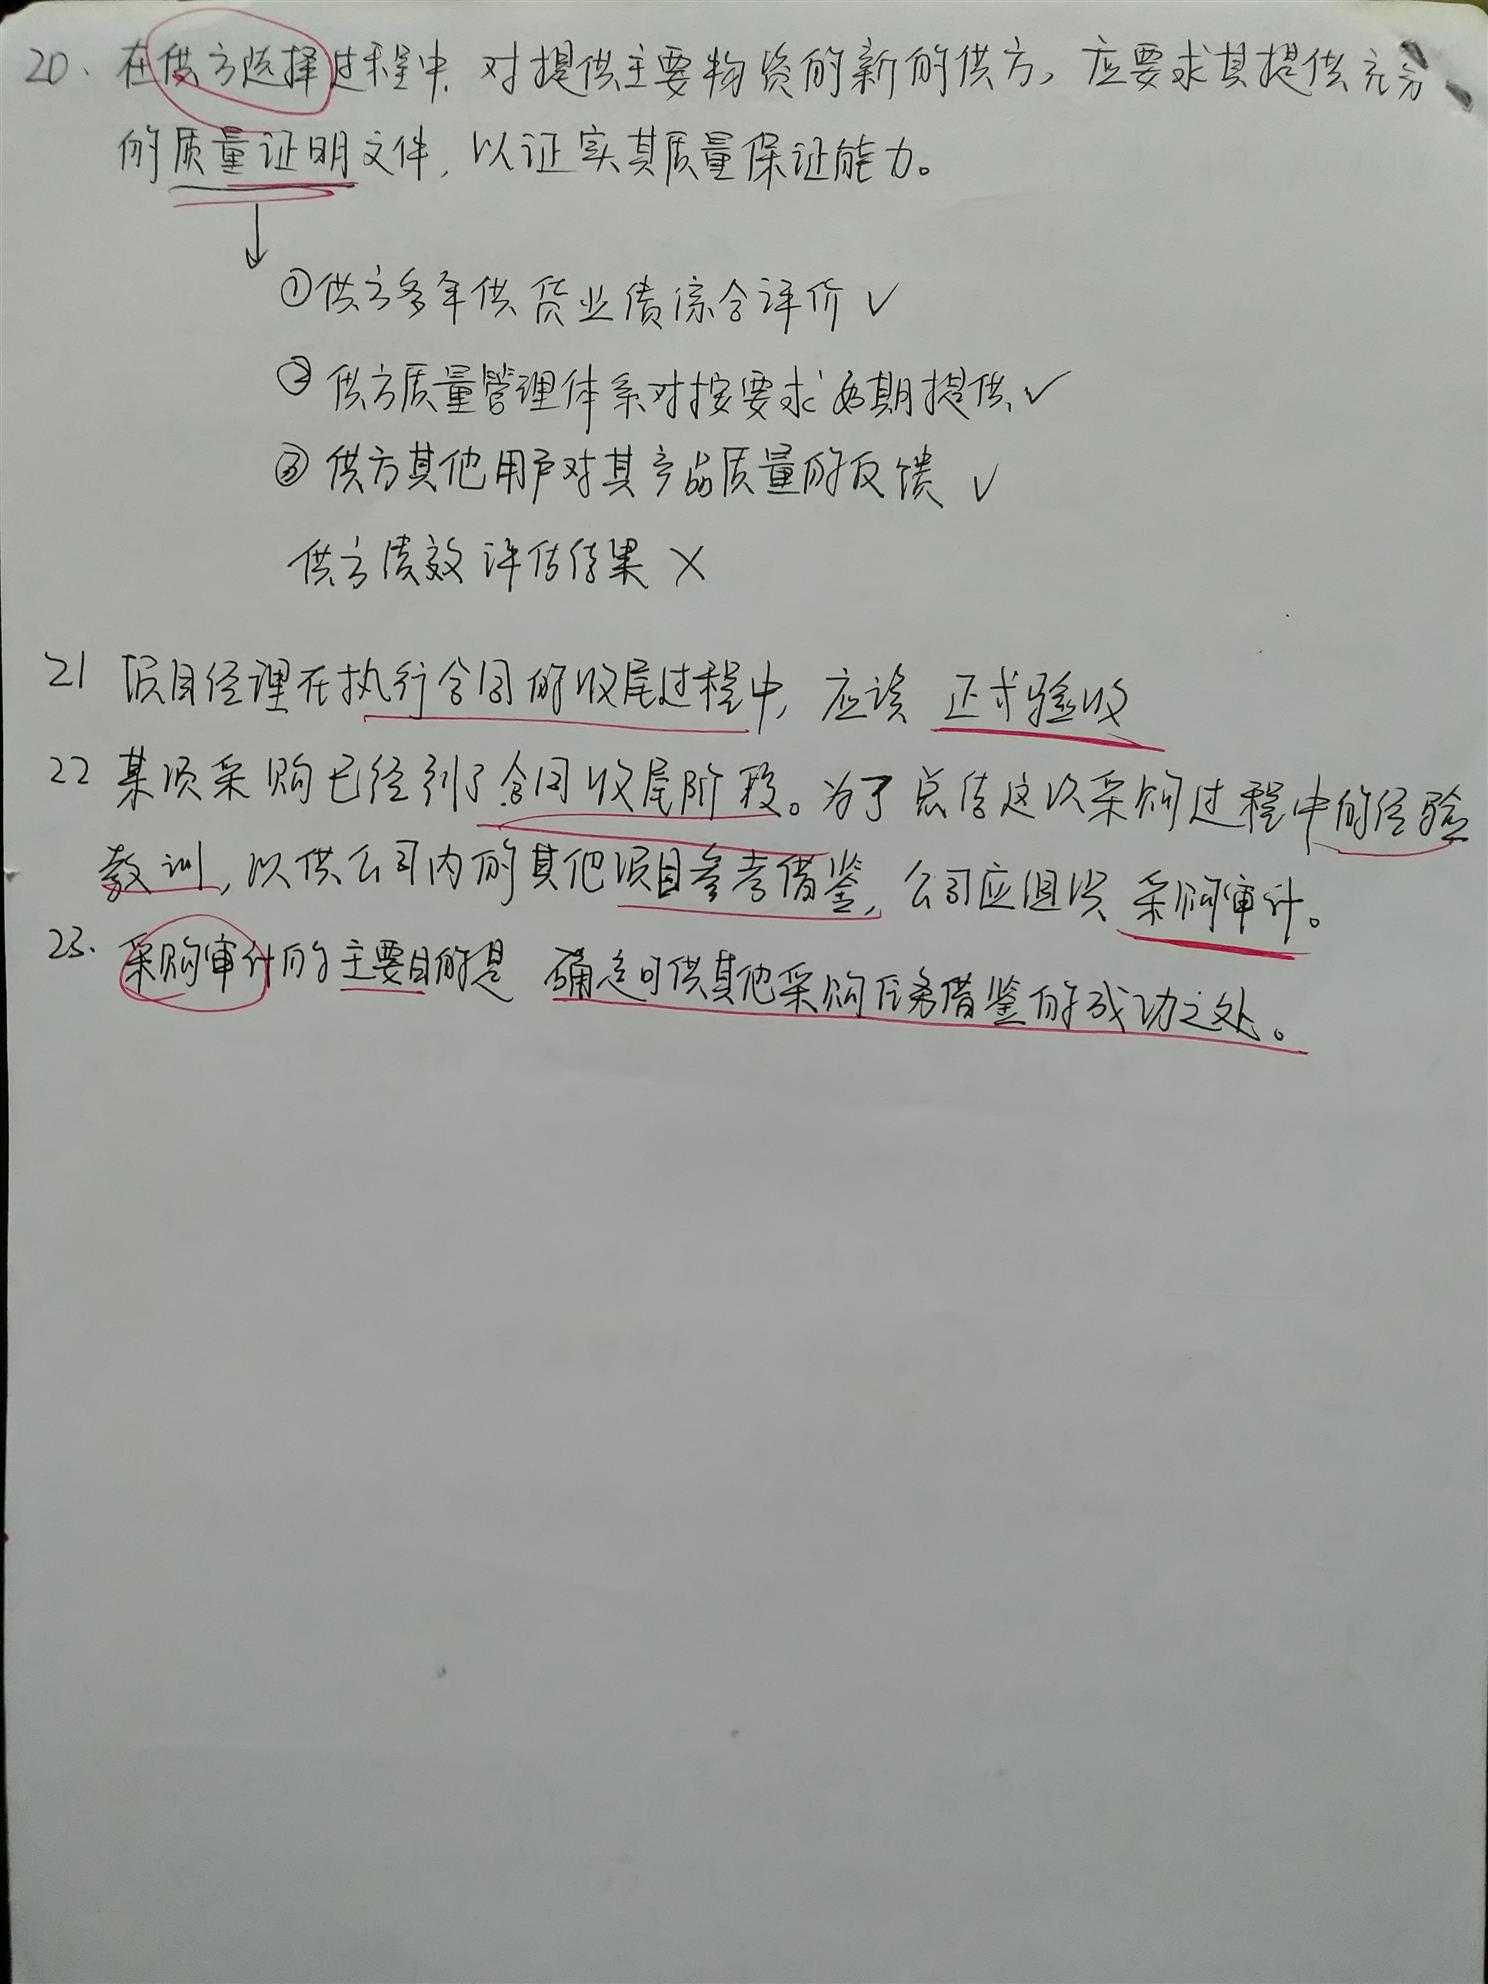 20、在供方选择过程中,对提供主要物资的新的供方,应要求其提供充分
的质量证明文件,以证实其质量保证能力。
①供方多年供货业绩综合评价 ✓
②供方质量管理体系对按要求如期提供 ✓
③供方其他用户对其产品质量的反馈 ✓
供方绩效评估结果 ×
21 项目经理在执行合同的收尾过程中,应该 正式验收
22 某项采购已经到了合同收尾阶段。为了总结这次采购过程中的经验
教训,以供公司内的其他项目参考借鉴,公司应组织 采购审计。
23.采购审计的主要目的是 确定可供其他采购任务借鉴的成功之处。